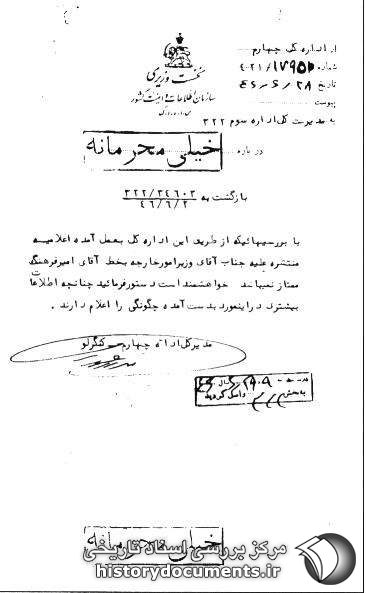 نخست وزیری
سازمان اطلاعات و امنیت کشور
از اداره کل چهارم
شماره ۴۰۲۱/۱۷۹۵۱
تاریخ ۴۶/۶/۲۸
پیوست
به مدیریت کل اداره سوم ۳۲۲
درباره
خیلی محرمانه
بازگشت به ۳۲۲/۳۴۶۰۳
۴۶/۶/۲
با بررسیهائیکه از طریق این اداره کل بعمل آمده اعلامیه
منتشره علیه جناب آقای وزیر امور خارجه بخط آقای امیر فرهنگ
ممتاز نمیباشد خواهشمند است دستور فرمائید چنانچه اطلاعات
بیشتری در اینمورد بدست آمده چگونگی را اعلام دارند .
مدیر کل اداره چهارم کنگرلو
بخش
واصل گردید
خیلی محرمانه
مرکز بررسی اسناد تاریخی
historydocuments.ir